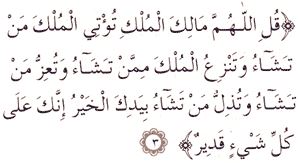 ﴿قُلِ اللَّهُمَّ مَالِكَ الْمُلْكِ تُؤْتِي الْمُلْكَ مَنْ
تَشَاءُ وَتَنْزِعُ الْمُلْكَ مِمَّنْ تَشَاءُ وَتُعِزُّ مَنْ
تَشَاءُ وَتُذِلُّ مَنْ تَشَاءُ بِيَدِكَ الْخَيْرُ إِنَّكَ عَلَى
كُلِّ شَيْءٍ قَدِيرٌ﴾ ٣